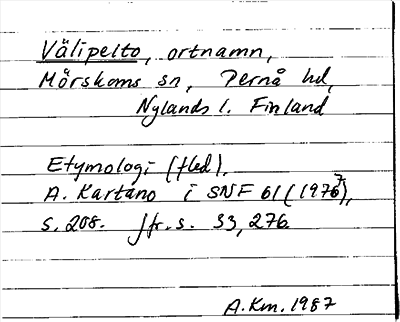 Välipelto, ortnamn,
Mörskoms sn, Pernå hd,
Nylands l. Finland
Etymologi (fled).
A. Kartano i SNF 61 (1977),
s. 208. Jfr. s. 33, 276.
A.Km. 1987